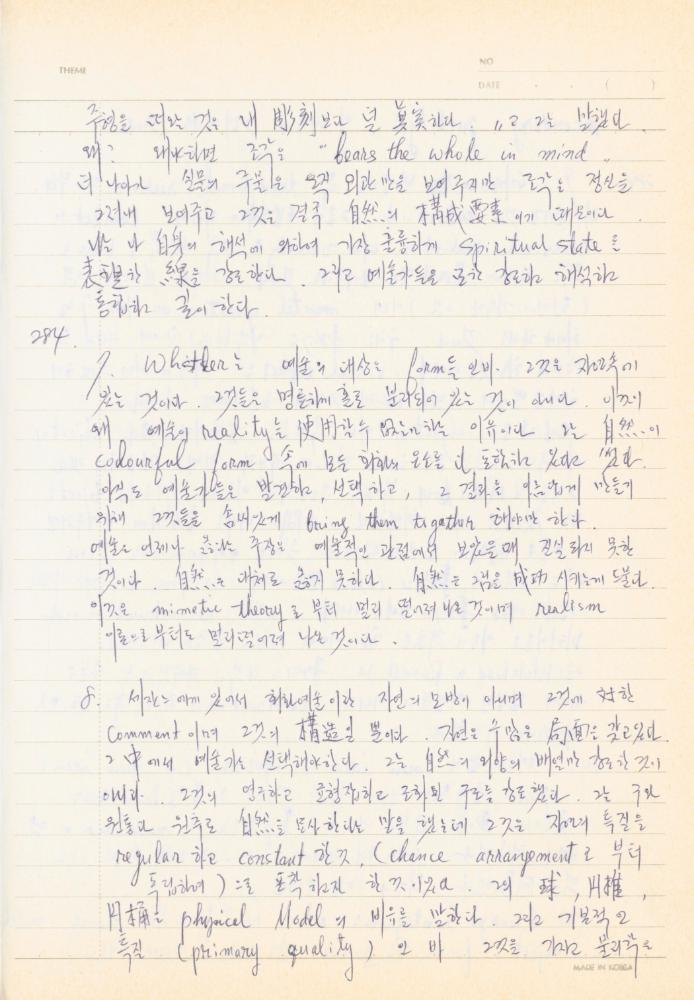 THEME
NO
DATE . . ( )
주형을 떠낸 것은 내 彫刻보다 덜 眞実하다. " 고 그는 말했다.
왜? 왜냐하면 조각은 "bears the whole in mind"
더 나아가 실물의 주물은 오직 외관만을 보여주지만 조각은 정신을
보여주고 그것은 결국 自然의 構成要素이기 때문이다.
나는 나 自身의 해석에 의하여 가장 훌륭하게 spiritual state를
表現한 線을 강조한다. 그리고 예술가들은 또한 강조하고 해석하고
통합하고 한다.
284.
7. Whistler는 예술의 대상은 form들 인바. 그것은 자연속에
있는 것이다. 그것들은 명료하게 홀로 분리되어 있는 것이 아니다. 이것이
왜 예술이 reality를 使用할수 없는가하는 이유이다. 그는 自然이
colourful form 속에 모든 회화의 요소를 다 포함하고 있다고 썼다.
아직도 예술가들은 발견하고, 선택하고, 그 결과를 아름답게 만들기
위해 그것들을 솜씨있게 bring them togather 해야만 한다.
예술은 언제나 옳다는 주장은 예술적인 관점에서 보았을때 진실되지 못한
것이다. 自然은 대체로 옳지 못하다. 自然은 그림을 成功시키는게 드물다.
이것은 mimetic theory로 부터 멀리 떨어져 나온 것이며 realism
이론으로부터도 멀리떨어져 나온 것이다.
8. 세잔느에게 있어서 회화예술이란 자연의 모방이 아니며 그것에 対한
comment이며 그것의 構造일 뿐이다. 자연은 수많은 局面을 갖고있다.
그 中에서 예술가는 선택해야한다. 그는 自然의 외양의 배열만 강조한것이
아니다. 그것의 영구하고 균형잡히고 조화된 구조를 강조했다. 그는 구와
원통과 원추로 自然을 묘사한다는 말을 했는데 그것은 자연의 특질을
regular 하고 constant 한것, (chance arrangement로 부터
독립하여) 으로 포착하고자 한것이었다. 그의 球, 円椎,
円桶은 physical Model의 비유를 말한다. 그리고 기본적인
특질 (primary quality) 인 바 그것을 가지고 물리학은
MADE IN KOREA